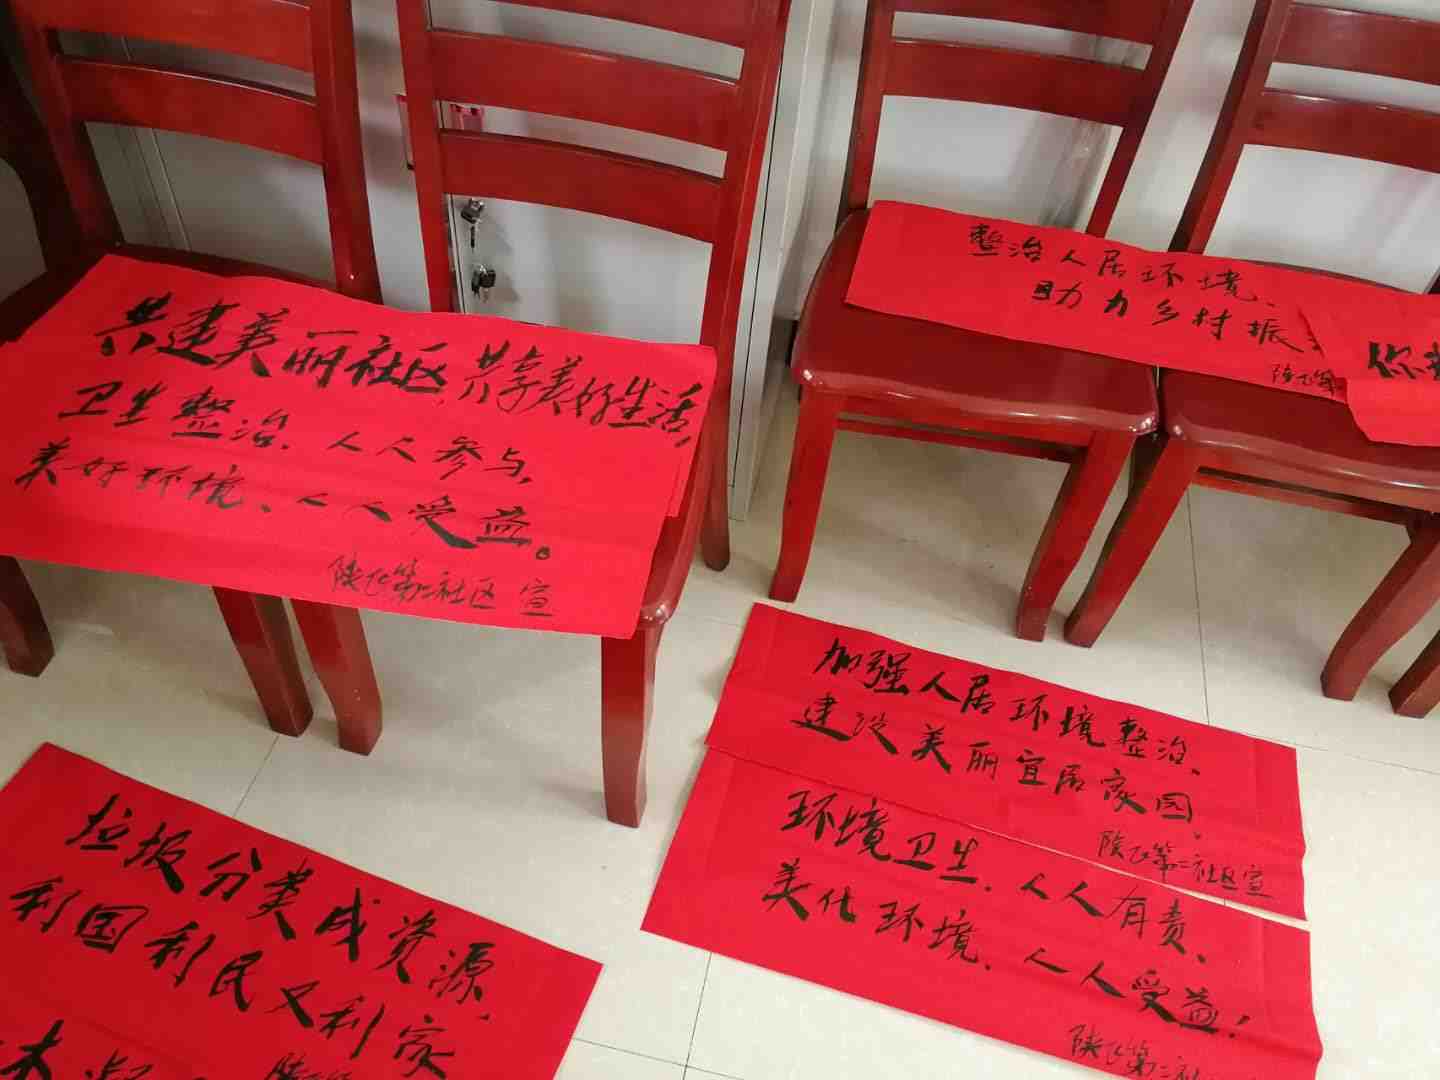 共建美丽社区,共享美好生活,
卫生整治、人人参与,
美好环境、人人受益。
陕飞第二社区 宣
整治人居环境、
助力乡村振
陕飞第
你
加强人居环境整治、
建设美丽宜居家园、
陕飞第二社区宣
环境卫生、人人有责、
美化环境、人人受益!
陕飞第二社
垃圾分类成资源,
利国利民又利家
木
陕飞